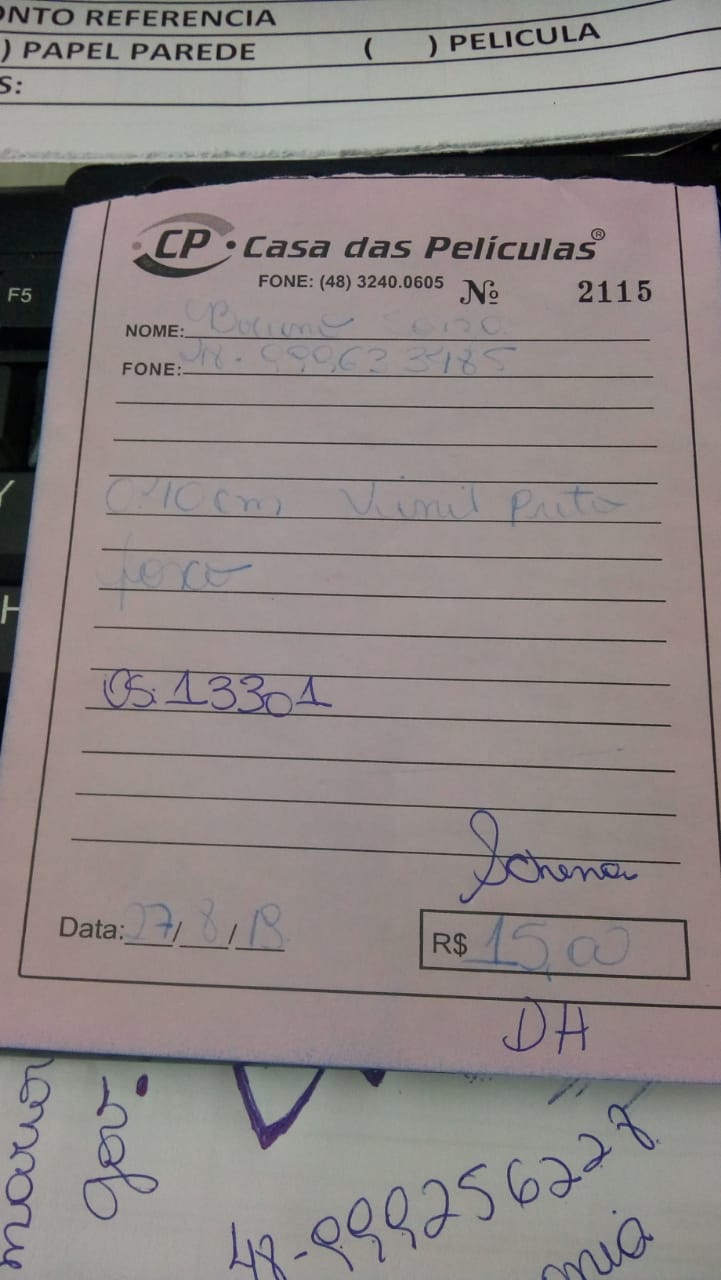 ONTO REFERENCIA
) PAPEL PAREDE ( ) PELICULA
S:
F5
CP · Casa das Películas®
FONE: (48) 3240.0605 Nº 2115
NOME:
FONE:
0.10cm Vinil preto
fosco
OS: 13301
Data: 27/8/19
R$ 15,00
DH
gov.
48-999256228